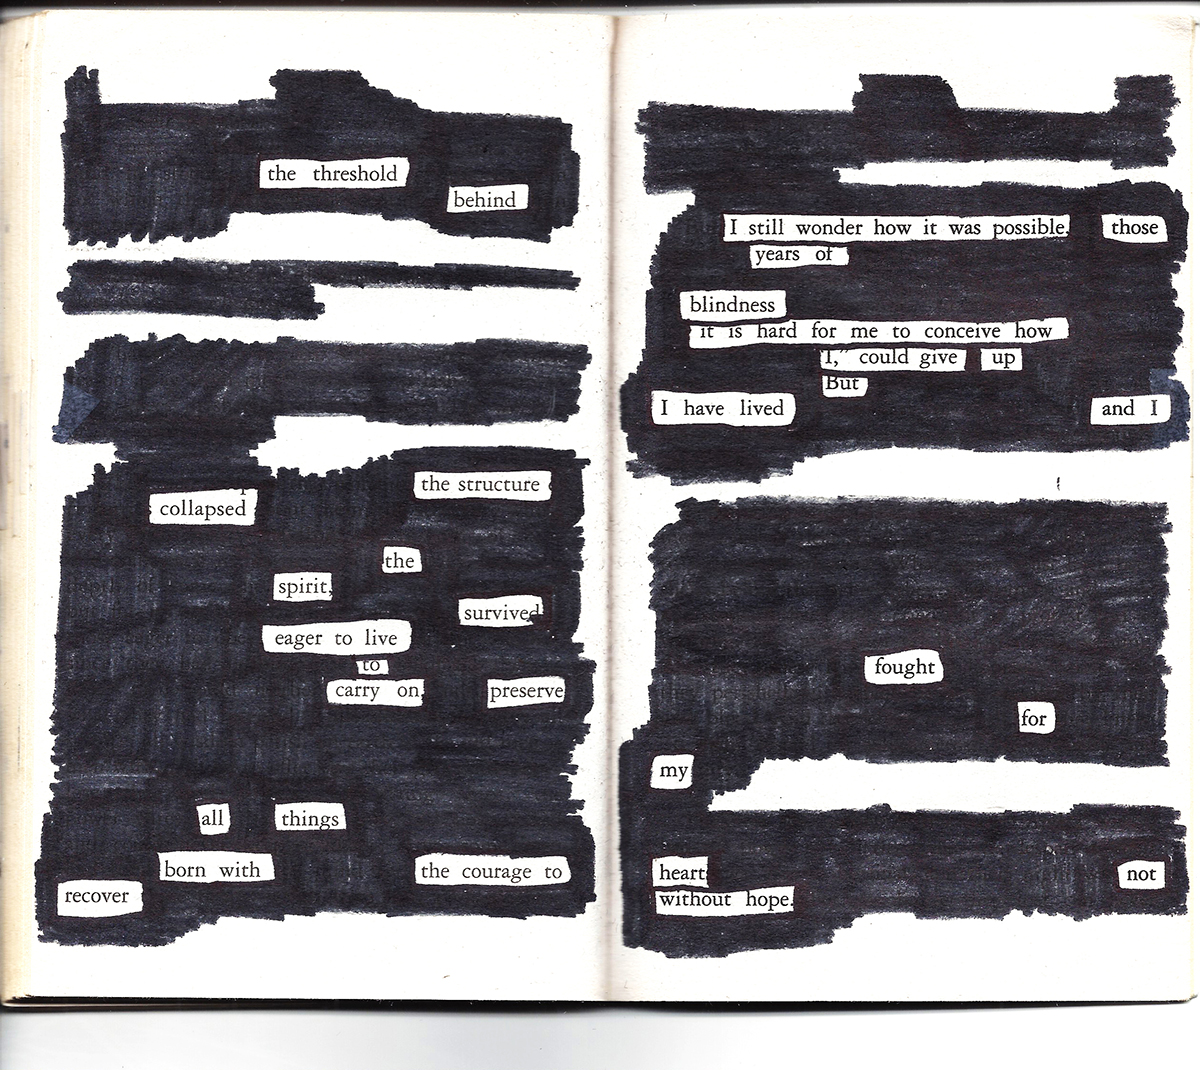 the threshold
behind
the structure
collapsed
the
spirit,
survived
eager to live
to
carry on, preserve
all things
born with the courage to
recover
I still wonder how it was possible. those
years of
blindness
it is hard for me to conceive how
I,” could give up
But
I have lived and I
fought
for
my
heart not
without hope.